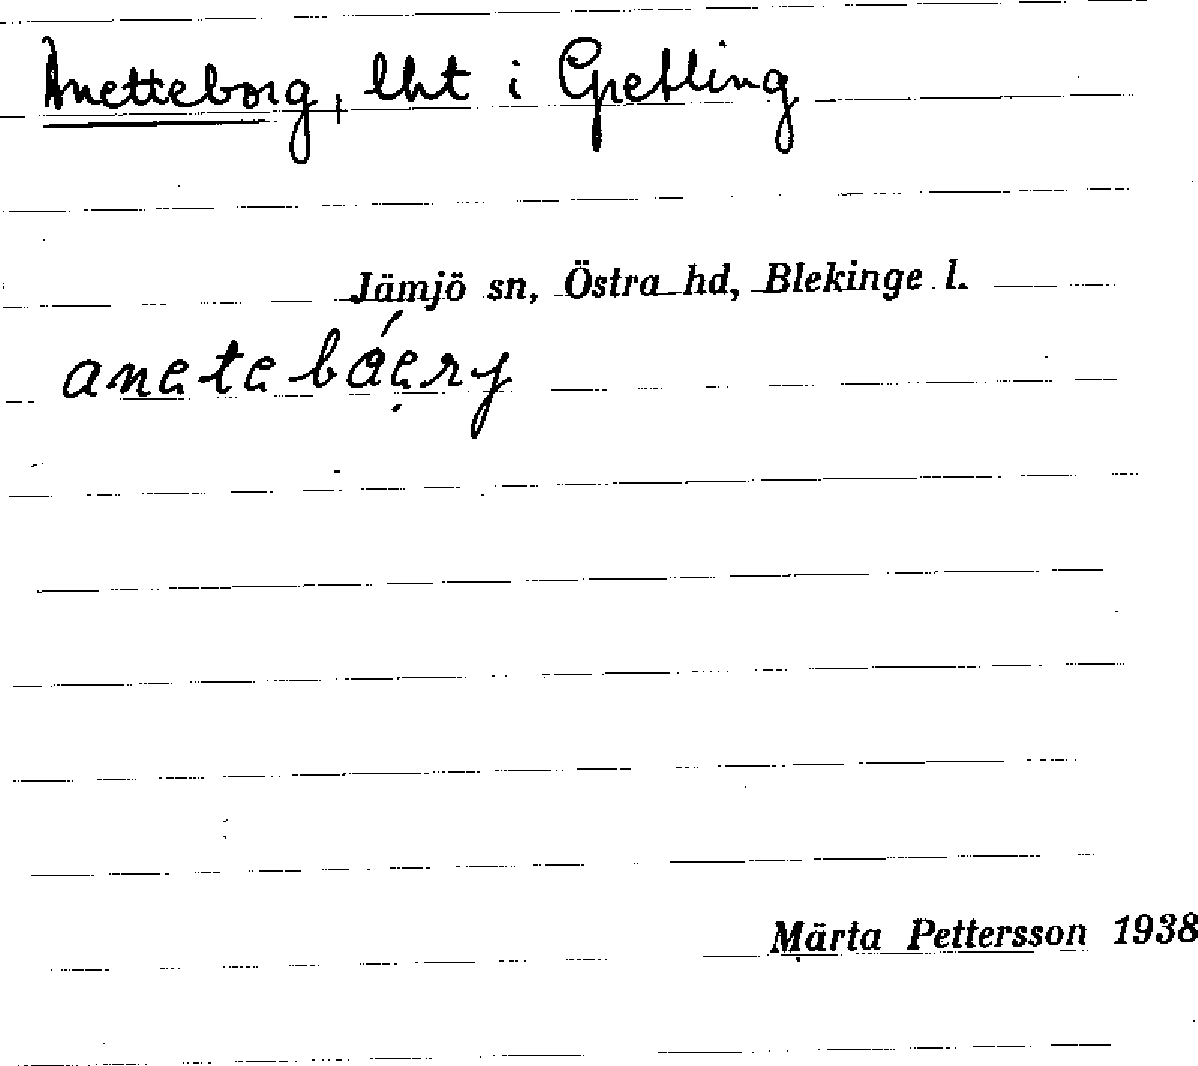 Anetteborg, lht i Gretling
Jämjö sn, Östra hd, Blekinge l.
Märta Pettersson 1938